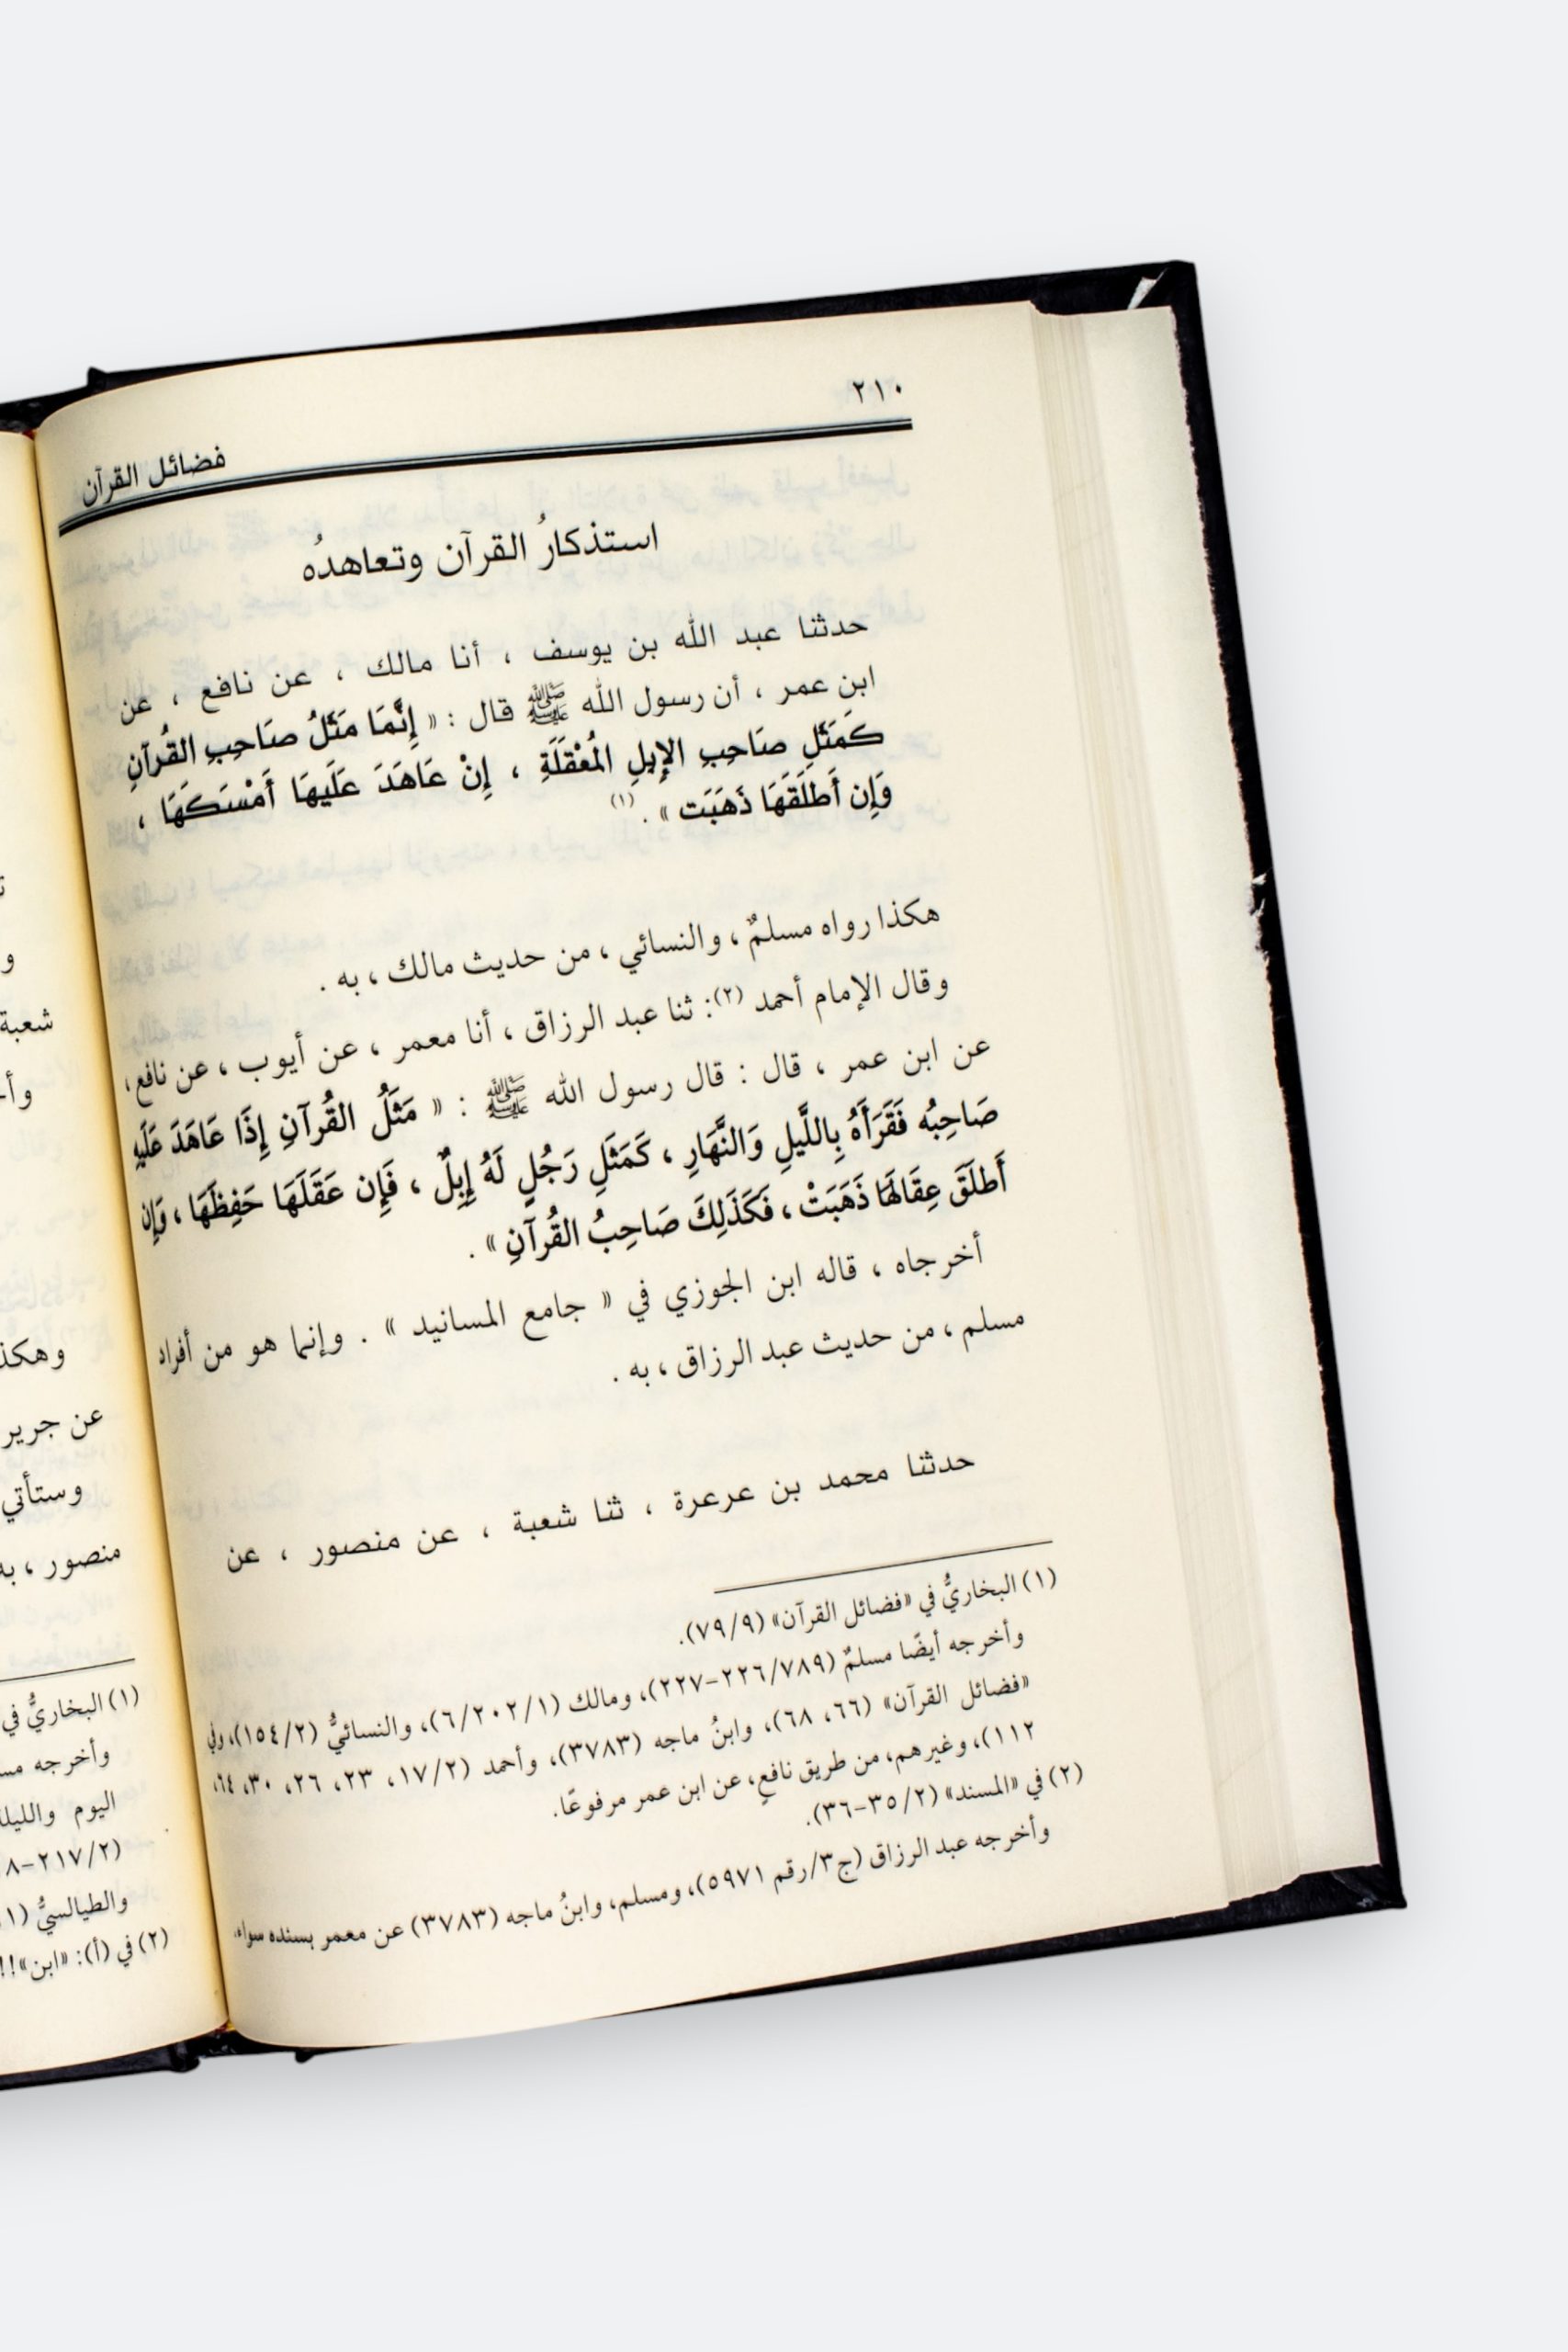 ٢١٠
فضائل القرآن
استذكارُ القرآن وتعاهدُه
حدثنا عبد الله بن يوسف ، أنا مالك ، عن نافع ، عن
ابن عمر ، أن رسول الله ﷺ قال : « إِنَّمَا مَثَلُ صَاحِبِ القُرآنِ
كَمَثَلِ صَاحِبِ الإِبِلِ المُعْقَلَةِ ، إِنْ عَاهَدَ عَلَيهَا أَمْسَكَهَا ،
وَإِن أَطلَقَهَا ذَهَبَت » . (١)
هكذا رواه مسلمٌ ، والنسائي ، من حديث مالك ، به .
وقال الإمام أحمد (٢): ثنا عبد الرزاق ، أنا معمر ، عن أيوب ، عن نافع ،
عن ابن عمر ، قال : قال رسول الله ﷺ : « مَثَلُ القُرآنِ إِذَا عَاهَدَ عَلَيهِ
صَاحِبُه فَقَرَأَهُ بِاللَّيلِ وَالنَّهَارِ ، كَمَثَلِ رَجُلٍ لَهُ إِبِلٌ ، فَإِن عَقَلَهَا حَفِظَهَا ، وَإِن
أَطلَقَ عِقَالَهَا ذَهَبَتْ ، فَكَذَلِكَ صَاحِبُ القُرآنِ » .
أخرجاه ، قاله ابن الجوزي في « جامع المسانيد » . وإنما هو من أفراد
مسلم ، من حديث عبد الرزاق ، به .
حدثنا محمد بن عرعرة ، ثنا شعبة ، عن منصور ، عن
(١) البخاريُّ في «فضائل القرآن» (٧٩/٩).
وأخرجه أيضًا مسلمٌ (٢٢٦/٧٨٩-٢٢٧)، ومالك (٦/٢٠٢/١)، والنسائيُّ (١٥٤/٢)، وفي
«فضائل القرآن» (٦٦، ٦٨)، وابنُ ماجه (٣٧٨٣)، وأحمد (١٧/٢، ٢٣، ٢٦، ٣٠، ٦٤،
١١٢)، وغيرهم، من طريق نافعٍ، عن ابن عمر مرفوعًا.
(٢) في «المسند» (٣٥/٢-٣٦).
وأخرجه عبد الرزاق (ج٣/رقم ٥٩٧١)، ومسلم، وابنُ ماجه (٣٧٨٣) عن معمر بسنده سواء.
شعبة
عن جرير
وستأتي
منصور ، به
(١) البخاريُّ في
وأخرجه
اليوم
والطيالسيُّ
(٢) في (أ): «ابن»!!